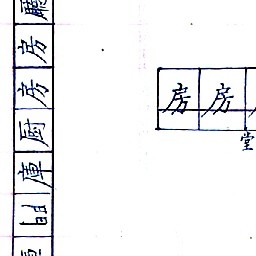 廳
房
房
厨
庫
房 房
堂